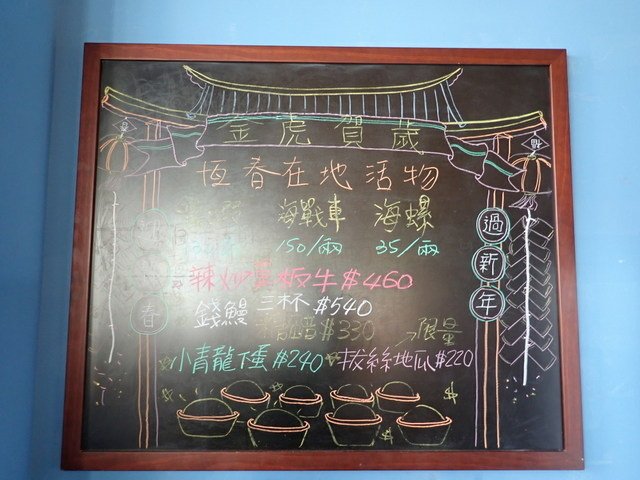 金虎賀歲
恆春在地活物
海戰車 海螺
150/兩 35/兩
辣炒 板牛 $460
錢鰻 三杯 $540
$330 →限量
小青龍下蛋 $240 拔絲地瓜 $220
春
過新年